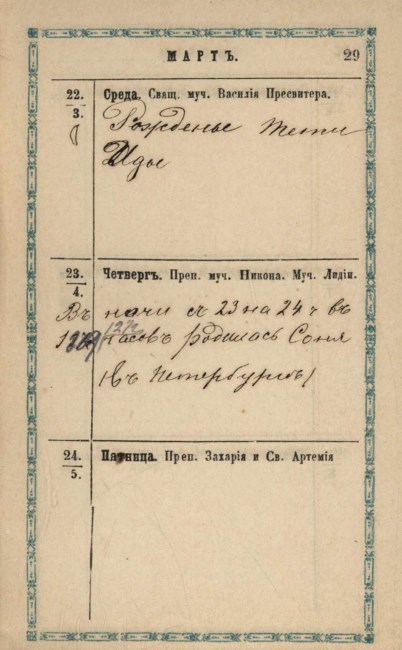 МАРТЪ. 29
22. Среда. Свящ. муч. Василія Пресвитера.
3. Рожденье тети
Иды
23. Четвергъ. Преп. муч. Никона. Муч. Лидіи.
4.
Въ ночи съ 23 на 24 ч въ
12½ часовъ родилась Соня
(въ Петербургѣ)
24. Пятница. Преп. Захарія и Св. Артемія
5.